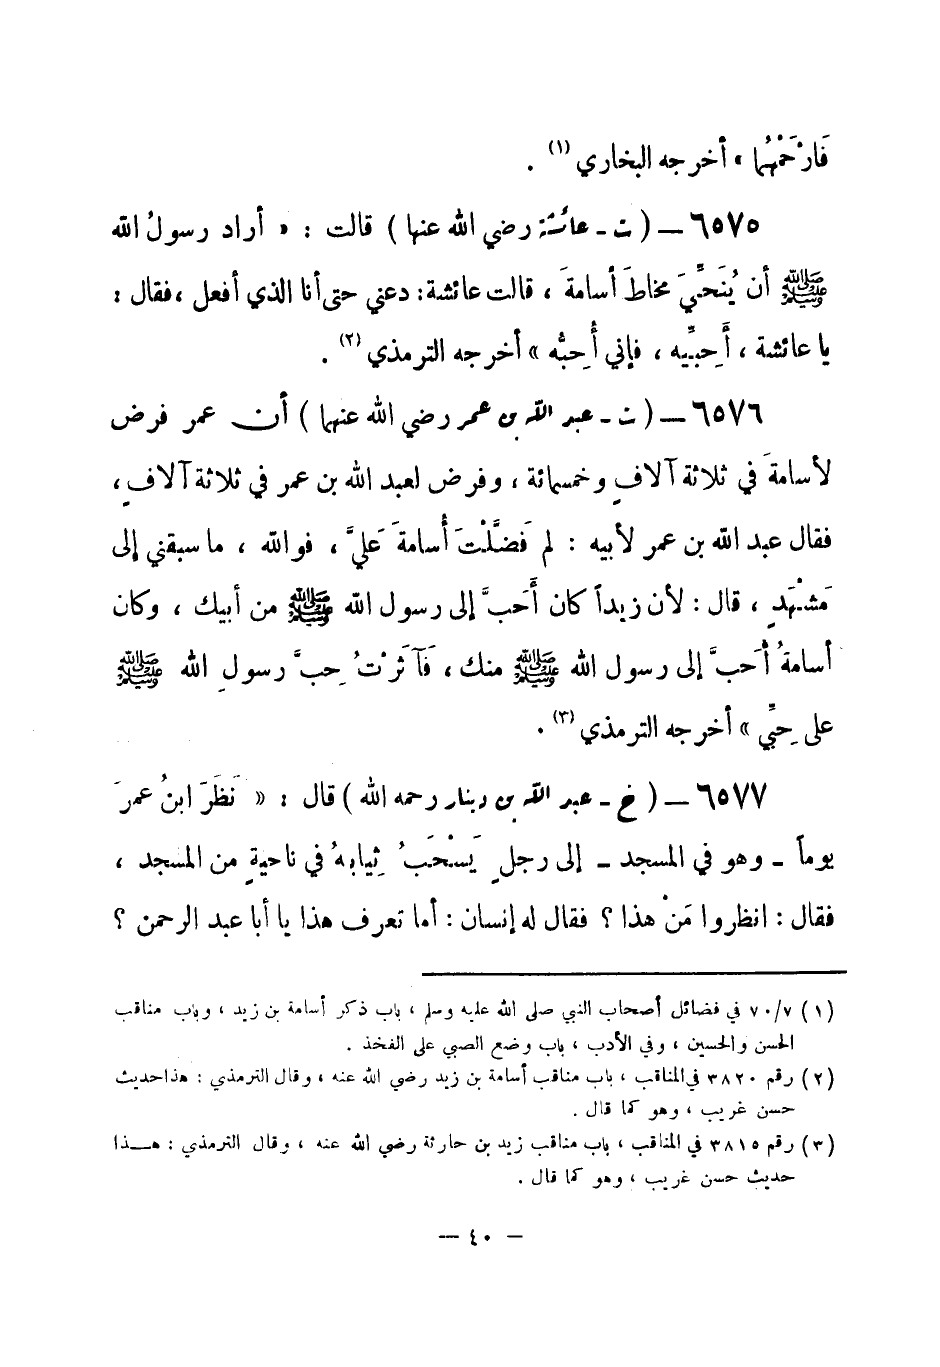 فَارْحَمْهُما » أخرجه البخاري (١) .
٦٥٧٥ ــ ( ت ـ عائشة رضي الله عنها ) قالت : « أراد رسولُ الله
ﷺ أن يُنَحِّيَ مخاطَ أسامةَ ، قالت عائشة : دعني حتى أنا الذي أفعل ، فقال :
يا عائشة ، أَحِبِّيه ، فإني أُحِبُّه » أخرجه الترمذي (٢) .
٦٥٧٦ ــ ( ت ـ عبد الله بن عمر رضي الله عنهما ) أن عمر فرض
لأسامةَ في ثلاثة آلافٍ وخمسمائة ، وفرض لعبد الله بن عمر في ثلاثة آلافٍ ،
فقال عبد الله بن عمر لأبيه : لم فَضَّلْتَ أُسامةَ عَليَّ ، فوالله ، ما سبقني إلى
مَشْهَدٍ ، قال : لأن زيداً كان أَحَبَّ إلى رسول الله ﷺ من أبيك ، وكان
أسامةُ أَحَبَّ إلى رسول الله ﷺ منك ، فَآثَرْتُ حِبَّ رسولِ الله ﷺ
على حِبِّي » أخرجه الترمذي (٣) .
٦٥٧٧ ــ ( خ ـ عبد الله بن دينار رحمه الله ) قال : « نَظَرَ ابنُ عمرَ
يوماً ـ وهو في المسجد ـ إلى رجلٍ يَسْحَبُ ثِيابهُ في ناحيةٍ من المسجد ،
فقال : انظروا مَنْ هذا ؟ فقال له إنسان : أما تعرف هذا يا أبا عبد الرحمن ؟
(١) ٧٠/٧ في فضائل أصحاب النبي صلى الله عليه وسلم ، باب ذكر أسامة بن زيد ، وباب مناقب
الحسن والحسين ، وفي الأدب ، باب وضع الصبي على الفخذ .
(٢) رقم ٣٨٢٠ في المناقب ، باب مناقب أسامة بن زيد رضي الله عنه ، وقال الترمذي : هذا حديث
حسن غريب ، وهو كما قال .
(٣) رقم ٣٨١٥ في المناقب ، باب مناقب زيد بن حارثة رضي الله عنه ، وقال الترمذي : هـــذا
حديث حسن غريب ، وهو كما قال .
— ٤٠ —